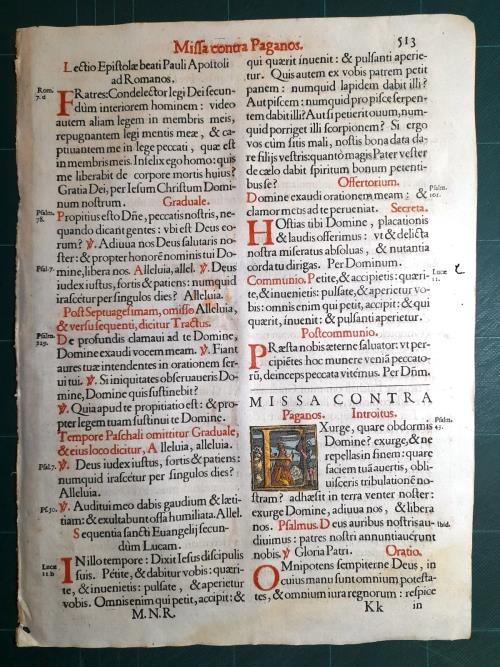 Missa contra Paganos.
513
Lectio Epistolæ beati Pauli Apostoli
ad Romanos.
Rom. 7.d
FRatres: Condelector legi Dei secun-
dùm interiorem hominem: video
autem aliam legem in membris meis,
repugnantem legi mentis meæ, & ca-
ptiuantem me in lege peccati, quæ est
in membris meis. Infelix ego homo: quis
me liberabit de corpore mortis huius?
Gratia Dei, per Iesum Christum Domi-
num nostrum. Graduale.
Psalm. 78.
Propitius esto Dñe, peccatis nostris, ne-
quando dicant gentes: vbi est Deus eo-
rum? ℣. Adiuua nos Deus salutaris no-
ster: & propter honorẽ nominis tui Do-
Psal. 7.
mine, libera nos. Alleluia, allel. ℣. Deus
iudex iustus, fortis & patiens: numquid
irascetur per singulos dies? Alleluia.
Post Septuagesimam, omisso Alleluia,
& versu sequenti, dicitur Tractus.
Psalm. 129.
De profundis clamaui ad te Domine,
Domine exaudi vocem meam. ℣. Fiant
aures tuæ intendentes in orationem ser-
ui tui. ℣. Si iniquitates obseruaueris Do-
mine, Domine quis sustinebit?
℣. Quia apud te propitiatio est: & pro-
pter legem tuam sustinui te Domine.
Tempore Paschali omittitur Graduale,
& eius loco dicitur, Alleluia, alleluia.
Psal. 7.
℣. Deus iudex iustus, fortis & patiens:
numquid irascetur per singulos dies?
Alleluia.
Ps. 50.
℣. Auditui meo dabis gaudium & læti-
tiam: & exultabunt ossa humiliata. Allel.
Sequentia sancti Euangelij secun-
dùm Lucam.
Lucæ 11.b
IN illo tempore: Dixit Iesus discipulis
suis. Pétite, & dabitur vobis: quæri-
te, & inuenietis: pulsate, & aperietur
vobis. Omnis enim qui petit, accipit: &
M.N.R.
qui quærit inuenit: & pulsanti aperie-
tur. Quis autem ex vobis patrem petit
panem: numquid lapidem dabit illi?
Aut piscem: numquid pro pisce serpen-
tem dabit illi? Aut si petierit ouum, num-
quid porriget illi scorpionem? Si ergo
vos cùm sitis mali, nostis bona data da-
re filijs vestris: quantò magis Pater vester
de cælo dabit spiritum bonum petenti-
bus se? Offertorium.
Domine exaudi orationem meam: &
Psalm. 101.
clamor meus ad te perueniat. Secreta.
HOstias tibi Domine, placationis
& laudis offerimus: vt & delicta
nostra miseratus absoluas, & nutantia
corda tu dirigas. Per Dominum.
Communio. Petite, & accipietis: quæri-
Lucæ 11.
te, & inuenietis: pulsate, & aperietur vo-
bis: omnis enim qui petit, accipit: & qui
quærit, inuenit: & pulsanti aperietur.
Postcommunio.
PRæsta nobis æterne saluator: vt per-
cipiẽtes hoc munere veniã pecca-
rũ, deinceps peccata vitẽmus. Per Dñm.
MISSA CONTRA
Paganos. Introitus.
EXurge, quare obdormis
Psalm. 43.
Domine? exurge, & ne
repellas in finem: quare
faciem tuã auertis, obli-
uisceris tribulationẽ no-
stram? adhæsit in terra venter noster:
exurge Domine, adiuua nos, & libera
nos. Psalmus. Deus auribus nostris au-
Ibid.
diuimus: patres nostri annuntiauẽrunt
nobis. ℣ Gloria Patri. Oratio.
OMnipotens sempiterne Deus, in
cuius manu sunt omnium potesta-
tes, & omnium iura regnorum: respice
Kk
in